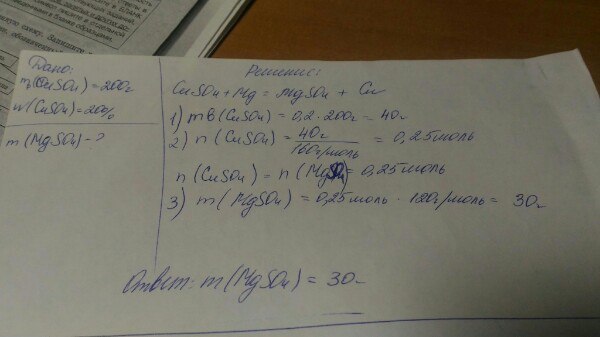 Дано:
m(CuSO₄)=200г
w(CuSO₄)=20%
m(MgSO₄)-?
Решение:
CuSO₄+Mg = MgSO₄ + Cu
1) mв(CuSO₄) = 0,2·200г = 40г
2) n(CuSO₄) = 40г/160г/моль = 0,25моль
n(CuSO₄) = n(MgSO₄) = 0,25моль
3) m(MgSO₄) = 0,25моль · 120г/моль = 30г
Ответ: m(MgSO₄) = 30г